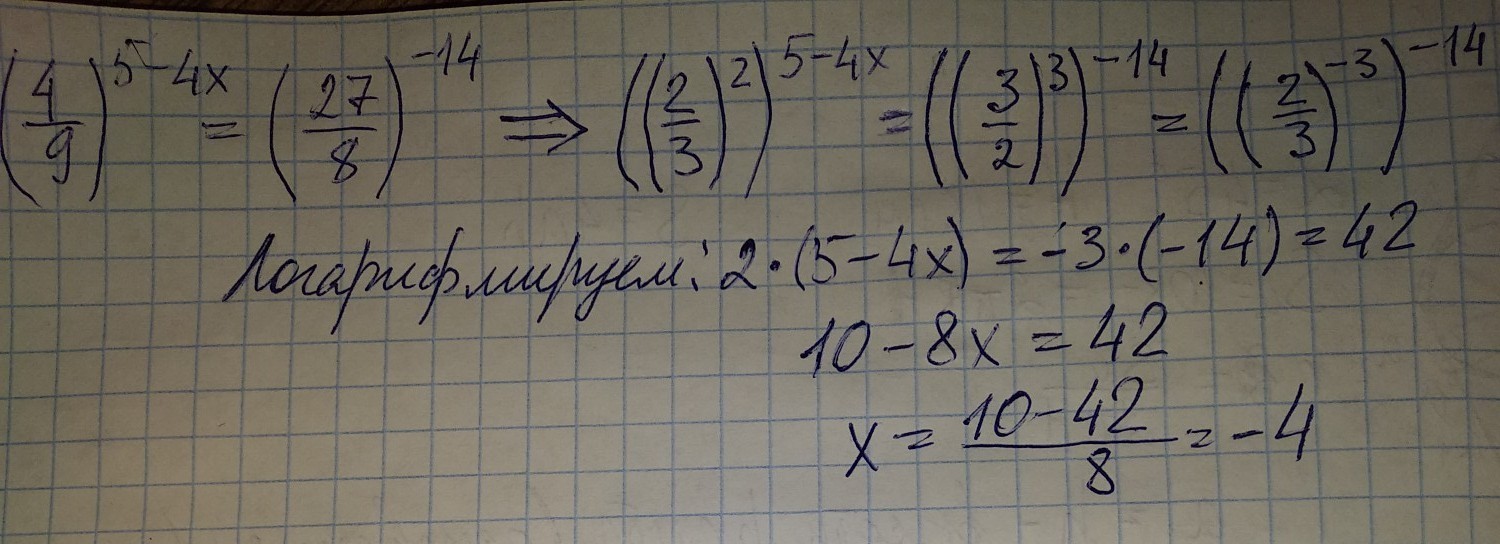 (4/9)^(5-4x) = (27/8)^(-14) ⇒ ((2/3)^2)^(5-4x) = ((3/2)^3)^(-14) = ((2/3)^(-3))^(-14)
Логарифмируем: 2·(5-4x) = -3·(-14) = 42
10-8x = 42
x = (10-42)/8 = -4